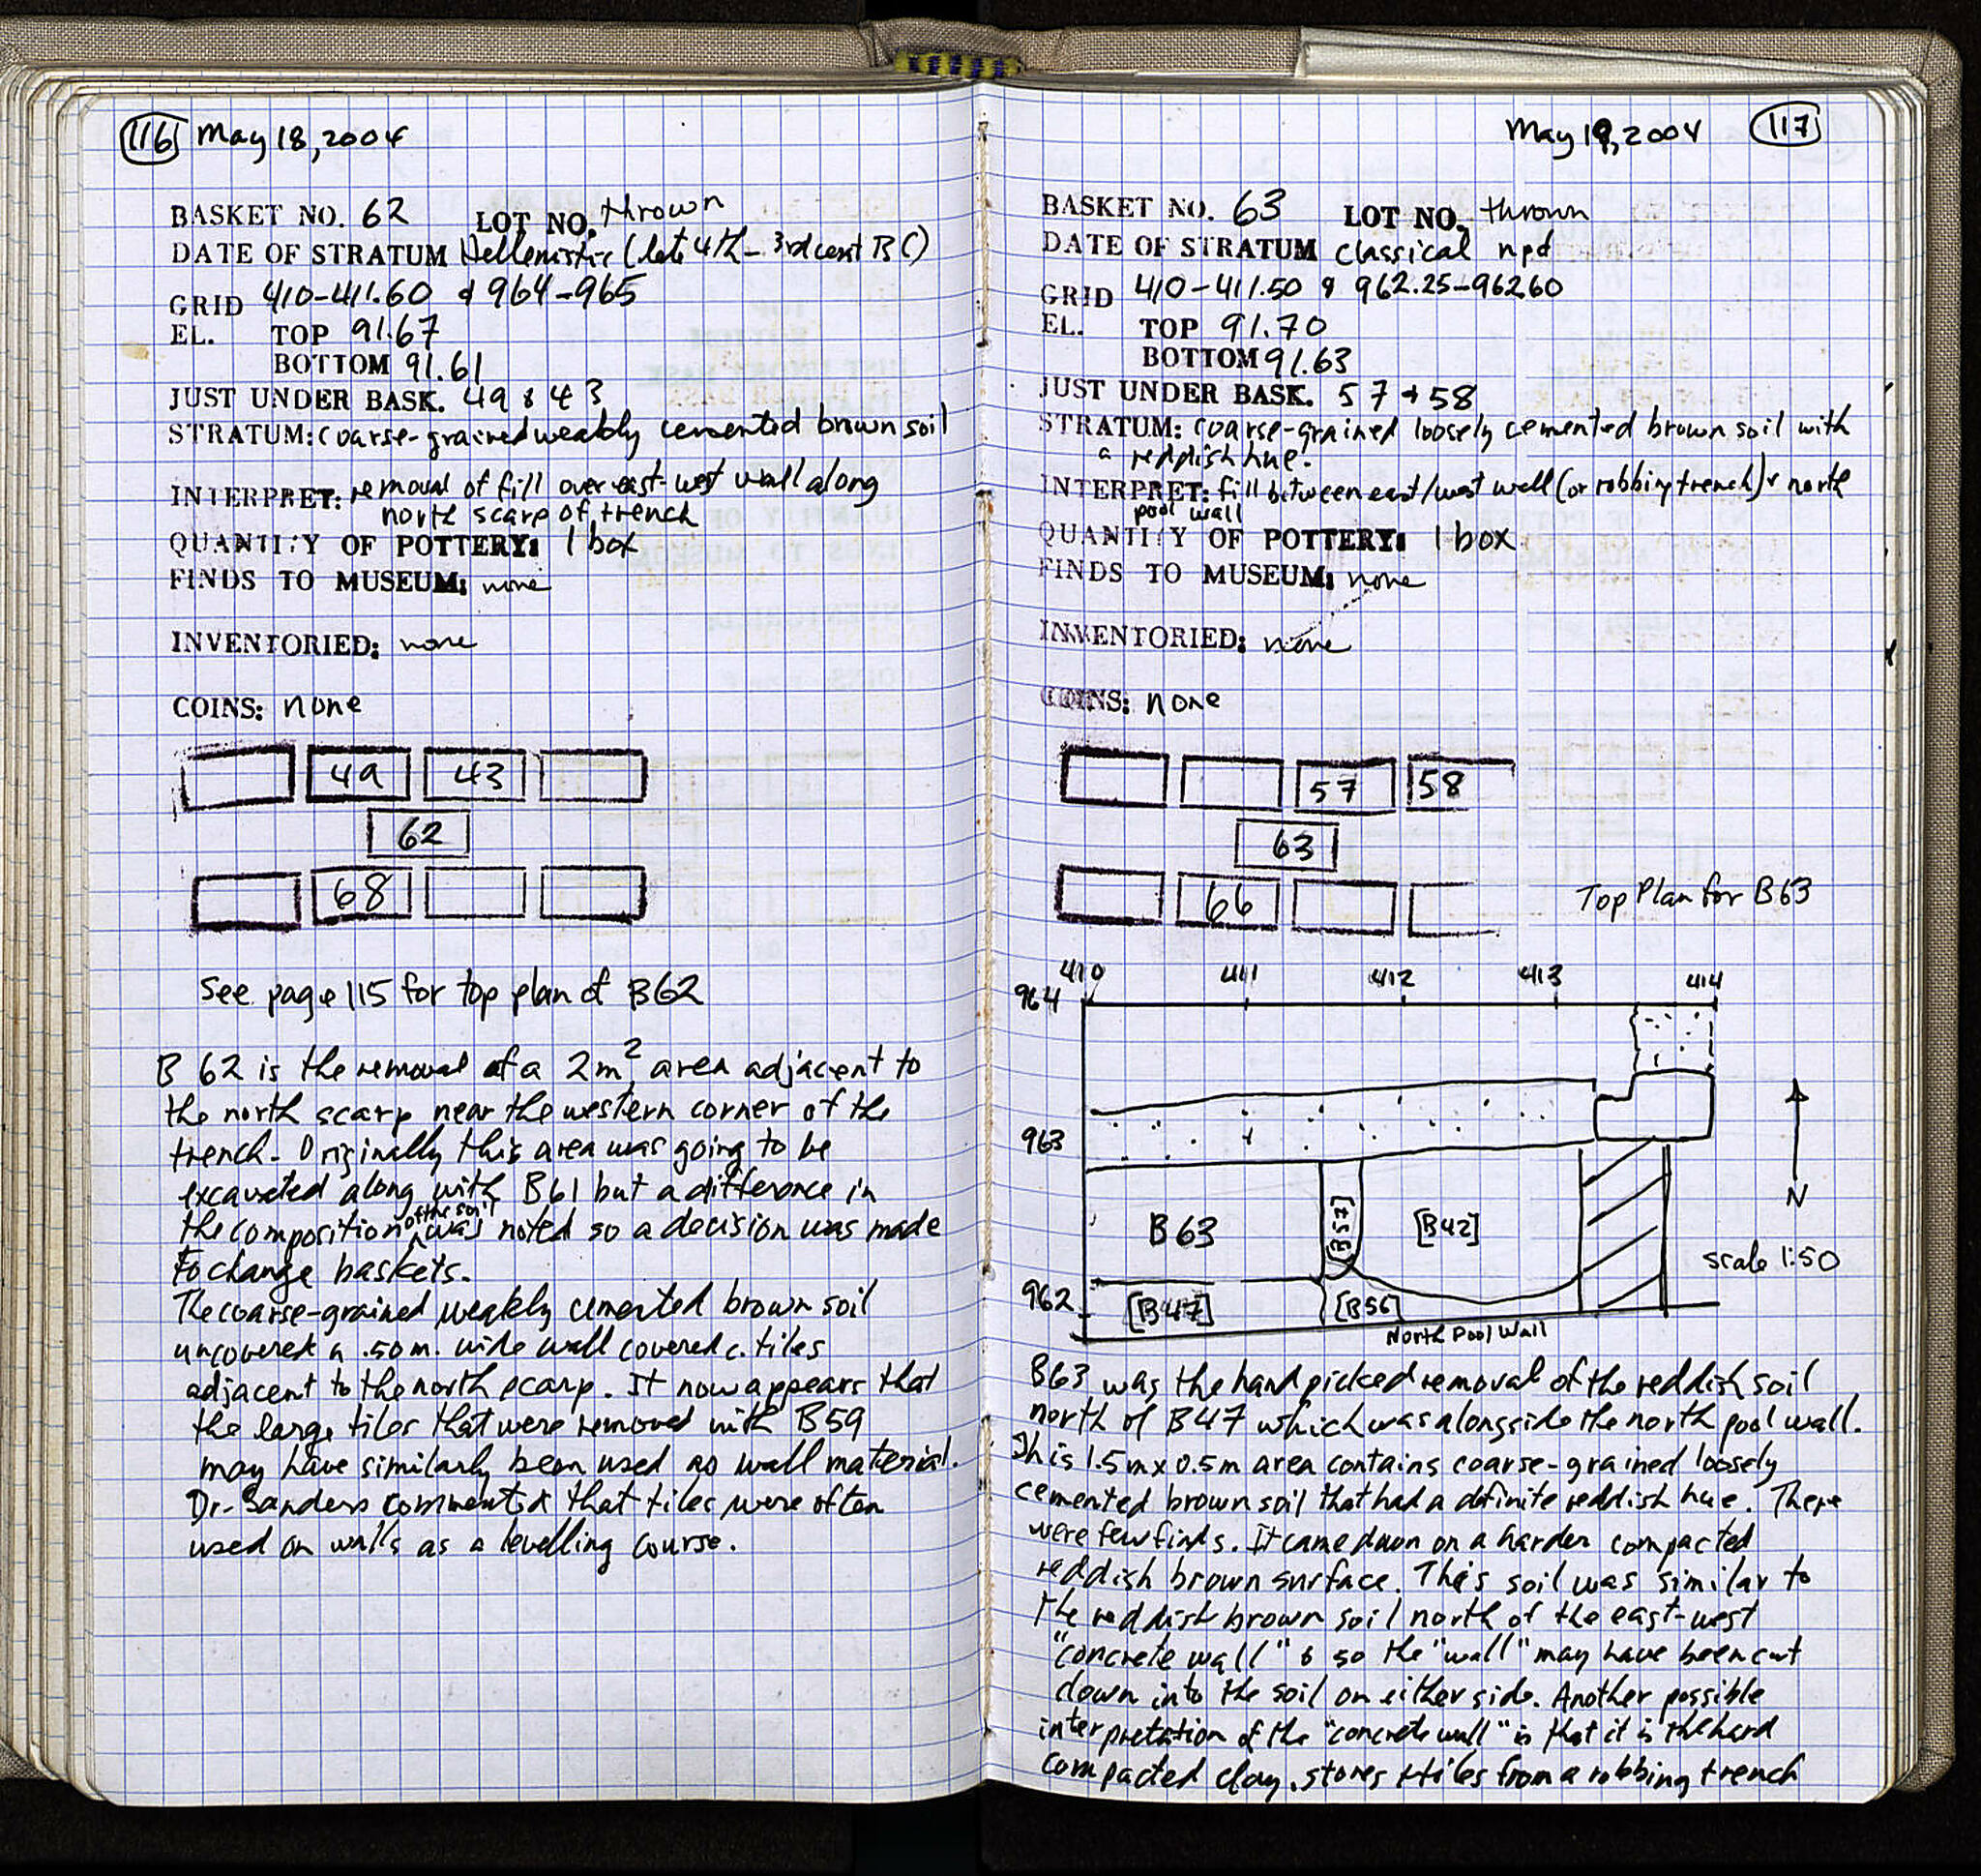 116 May 18, 2004
BASKET NO. 62 LOT NO. thrown
DATE OF STRATUM Hellenistic (late 4th - 3rd cent BC)
GRID 410-411.60 & 964-965
EL. TOP 91.67
BOTTOM 91.61
JUST UNDER BASK. 49 & 43
STRATUM: coarse-grained weakly cemented brown soil
INTERPRET: removal of fill over east-west wall along
north scarp of trench
QUANTITY OF POTTERY: 1 box
FINDS TO MUSEUM: none
INVENTORIED: none
COINS: none
49 43
62
68
See page 115 for top plan of B62
B 62 is the removal of a 2m² area adjacent to
the north scarp near the western corner of the
trench. Originally this area was going to be
excavated along with B61 but a difference in
the composition of the soil was noted so a decision was made
to change baskets.
The coarse-grained weakly cemented brown soil
uncovered a .50 m. wide wall covered c. tiles
adjacent to the north scarp. It now appears that
the large tiles that were removed with B59
may have similarly been used as wall material.
Dr. Sanders commented that tiles were often
used on walls as a levelling course.
May 19, 2004 117
BASKET NO. 63 LOT NO. thrown
DATE OF STRATUM classical npd
GRID 410-411.50 & 962.25-962.60
EL. TOP 91.70
BOTTOM 91.63
JUST UNDER BASK. 57 + 58
STRATUM: coarse-grained loosely cemented brown soil with
a reddish hue.
INTERPRET: fill between east/west wall (or robbing trench) & north
pool wall
QUANTITY OF POTTERY: 1 box
FINDS TO MUSEUM: none
INVENTORIED: none
COINS: none
57 58
63
66
Top Plan for B63
410 411 412 413 414
964
963
N
B 63 [B57] [B42]
scale 1:50
962
[B47] [B56]
North Pool Wall
B63 was the hand picked removal of the reddish soil
north of B47 which was alongside the north pool wall.
This 1.5m x 0.5m area contains coarse-grained loosely
cemented brown soil that had a definite reddish hue. There
were few finds. It came down on a harder compacted
reddish brown surface. This soil was similar to
the reddish brown soil north of the east-west
"concrete wall" & so the "wall" may have been cut
down into the soil on either side. Another possible
interpretation of the "concrete wall" is that it is the hard
compacted clay, stones + tiles from a robbing trench